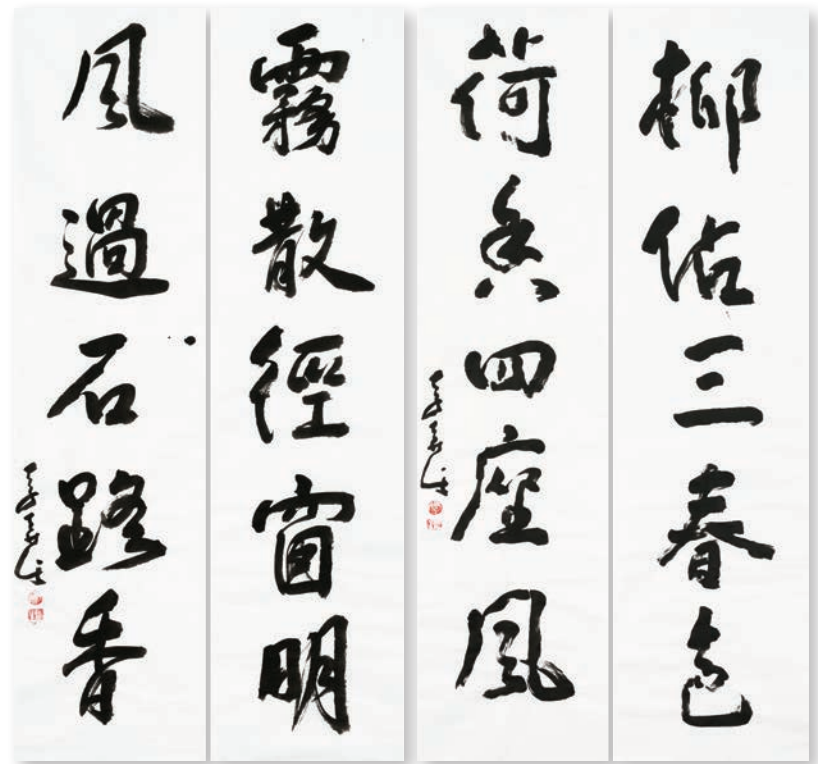 柳佔三春色
荷香四座風
霧散徑窗明
風過石路香